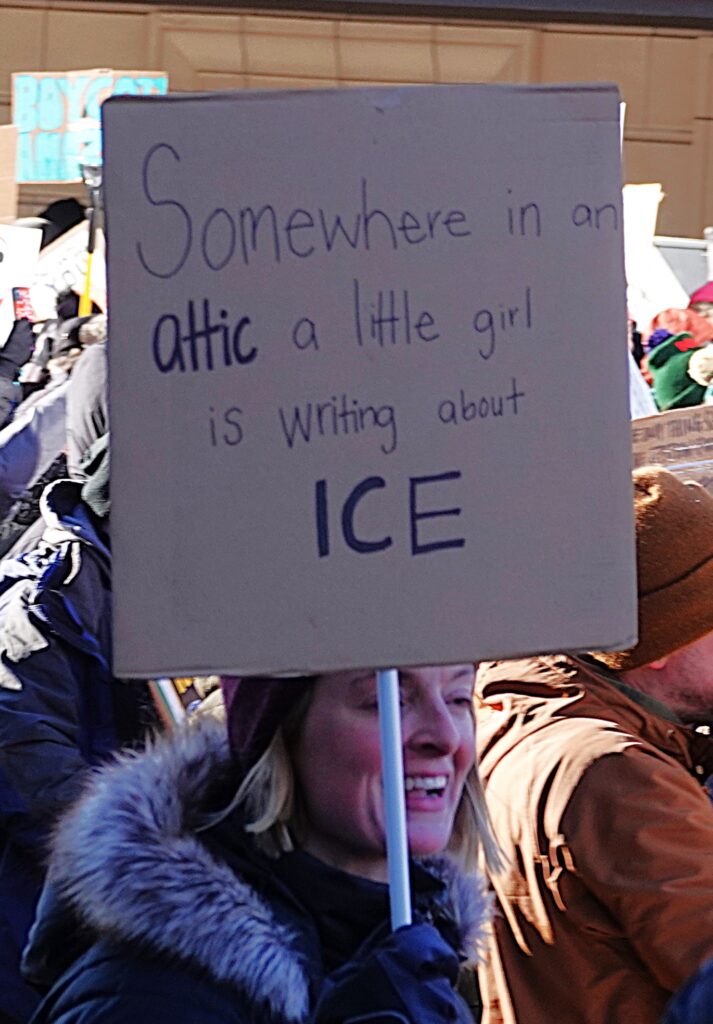 BOYCOTT
Somewhere in an
attic a little girl
is writing about
ICE
THINGS